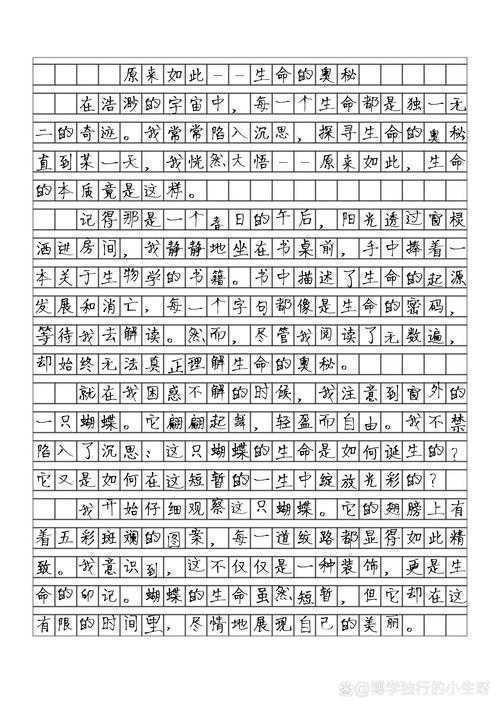 原来如此--生命的奥秘
在浩渺的宇宙中，每一个生命都是独一无
二的奇迹。我常常陷入沉思，探寻生命的奥秘
直到某一天，我恍然大悟--原来如此，生命
的本质竟是这样。
记得那是一个春日的午后，阳光透过窗棂
洒进房间，我静静地坐在书桌前，手中捧着一
本关于生物学的书籍。书中描述了生命的起源
发展和消亡，每一个字句都像是生命的密码，
等待我去解读。然而，尽管我阅读了无数遍，
却始终无法真正理解生命的奥秘。
就在我困惑不解的时候，我注意到窗外的
一只蝴蝶。它翩翩起舞，轻盈而自由。我不禁
陷入了沉思：这只蝴蝶的生命是如何诞生的？
它又是如何在这短暂的一生中绽放光彩的？
我开始仔细观察这只蝴蝶。它的翅膀上有
着五彩斑斓的图案，每一道纹路都显得如此精
致。我意识到，这不仅仅是一种装饰，更是生
命的印记。蝴蝶的生命虽然短暂，但它却在这
有限的时间里，尽情地展现自己的美丽。
@博学独行的小生呀